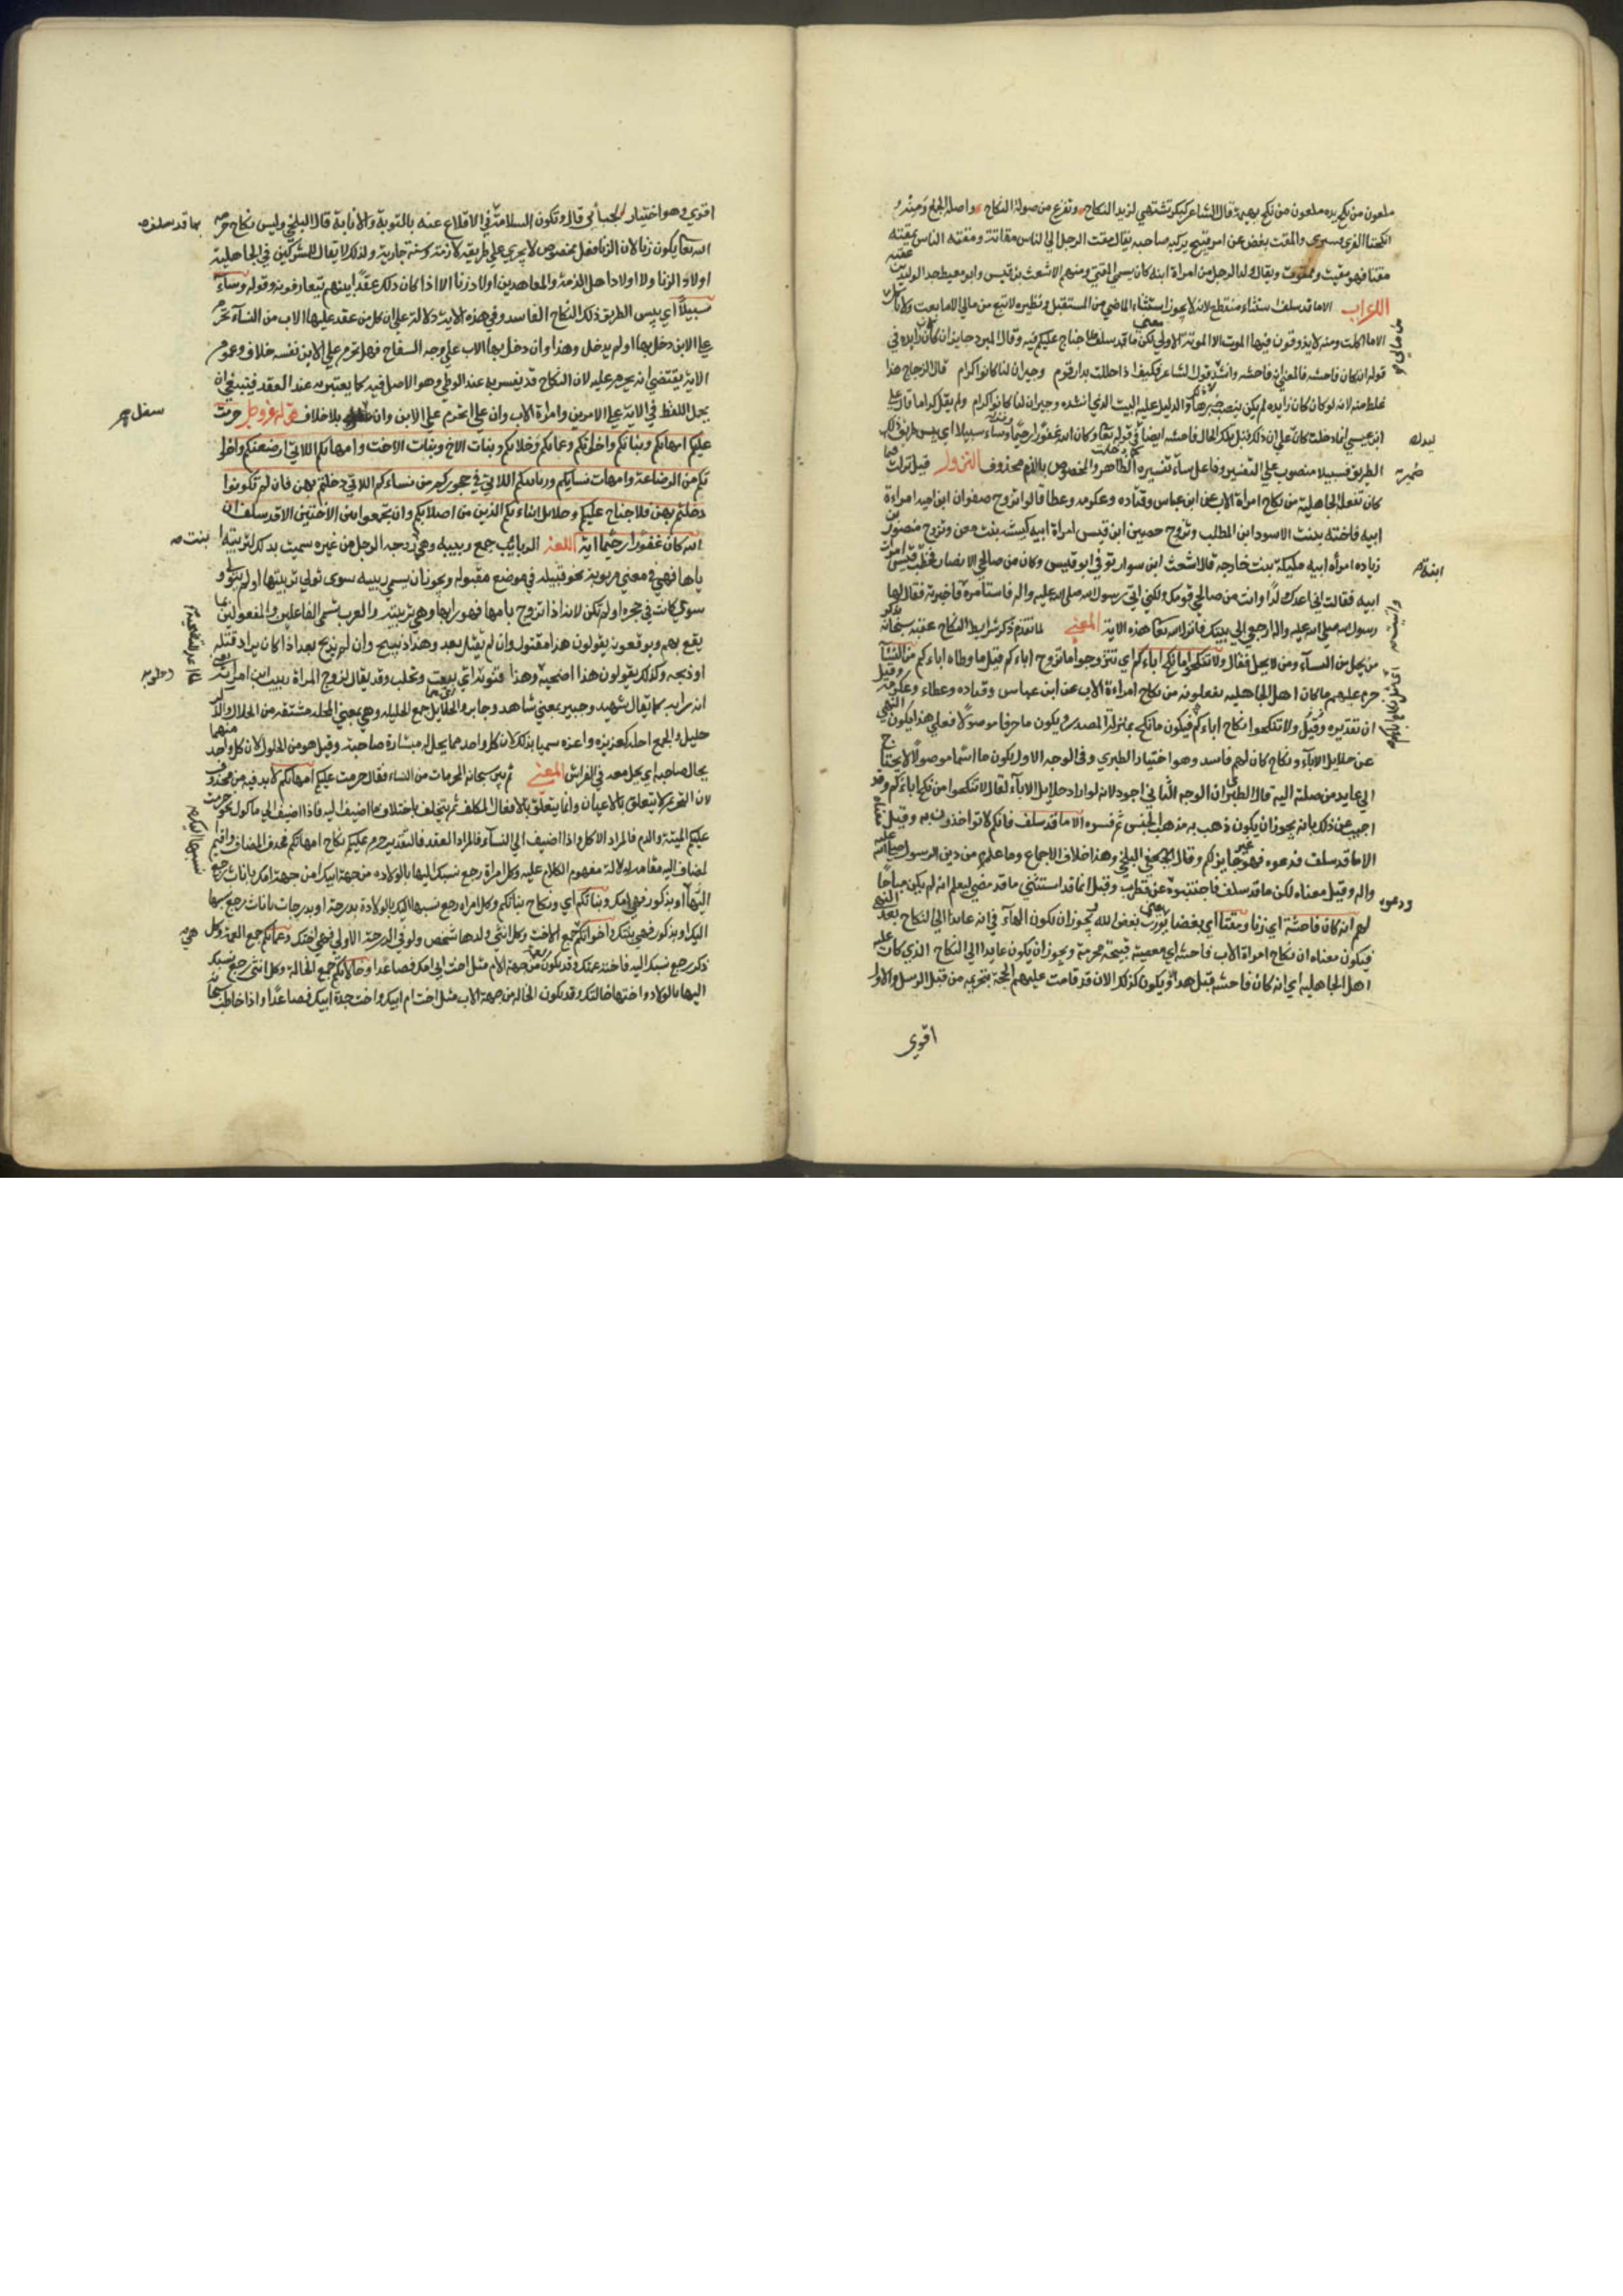 ملعون من نكح يده ملعون من نكح بهيمة قال الشاعر كبكر تشتهي لزيد النكاح وتفزع من صولة النكاح واصله الجمع ومنه
انكحنا الفرى فسنرى والمقت بغض عن امر قبيح يركبه صاحبه يقال مقت الرجل الى الناس مقاتة ومقته الناس يمقته
مقتا فهو مقيت وممقوت ويقال لولد الرجل من امراة ابيه كان يسمى المقتي ومنهم الاشعث بن قيس وابو معيط جد الوليد بن عقبة
الاعراب الاما قد سلف استثناء منقطع لانه لا يجوز استثناء الماضي من المستقبل ونظيره لا تبع من مالي الا ما بعت ولا تاكل
الا ما اكلت ومنه لا يذوقون فيها الموت الا الموتة الاولى لكن ما قد سلف فلا جناح عليكم فيه وقال المبرد جايز ان كان زايده في
قوله انه كان فاحشه فالمعنى انه فاحشه وانشد قول الشاعر فكيف اذا حللت بدار قوم وجيران لنا كانوا كرام قال الزجاج هذا
غلط منه لانه لو كان كان زايده لم يكن ينصب خبرها والدليل عليه البيت الذي انشده وجيران لنا كانوا كرام ولم يقل كراما قال علي
ابن عيسى انما دخلت كان على ان ذلك قبل تلك الحال فاحشه ايضا في قوله تعا وكان الله غفورا رحيما وساء سبيلا اي بيس طريق ذلك
الطريق فسبيلا منصوب على التفسير وفاعل ساء تفسيره الظاهر والمخصوص بالذم محذوف النزول قيل نزلت فيما
كان تفعله الجاهلية من نكاح امراة الاب عن ابن عباس وقتاده وعكرمه وعطا قالوا تزوج صفوان ابن اميه امراءة
ابيه فاخته بنت الاسود ابن المطلب وتزوج حصين ابن قيس امراة ابيه كبيشه بنت معن وتزوج منصور بن
زياده امرأه ابيه مليكة بنت خارجه قال اشعث ابن سوار توفي ابو قيس وكان من صالحي الانصار فخطب قيس امراة
ابيه فقالت اني اعدك ولدا وانت من صالحي قومك ولكني اتي رسول الله صلى الله عليه واله فاستأمره فاخبرته فقال لها
رسول الله صلى الله عليه واله ارجعي الى بيتك فانزل الله تعا هذه الاية المعني لما تقدم ذكر شرايط النكاح عقبه سبحانه بذكر
من يحل من النسآء ومن لا يحل فقال ولا تنكحوا ما نكح اباءكم اي تتزوجوا ما تزوج اباءكم قيل ما وطاه اباءكم من النسآ
حرم عليهم ما كان اهل الجاهليه يفعلونه من نكاح امراءة الاب عن ابن عباس وقتاده وعطاء وعكرمه وقيل
ان تقديره ولا تنكحوا نكاح اباءكم فيكون ما نكح بمنزلة المصدر ويكون ما حرفا موصولا فعلى هذا يكون النهي
عن حلايل الآباء ونكاح كان لهم فاسد وهو اختيار الطبري وفي الوجه الاول يكون ما اسما موصولا لا يحتاج
الى عايد من صلته اليه قال الطبرى ان الوجه الثاني اجود لانه لو اراد حلايل الابآء لقال لا تنكحوا من نكح اباءكم وقد
اجيب عن ذلك بانه يجوز ان يكون ذهب به مذهب الجنس ثم فسره الاما قد سلف فانكم لا تواخذون به وقيل معناه
الاما قد سلف فدعوه فهو غير جايز لكم وقال البلخي وهذا خلاف الاجماع وما علم من دين الرسول صلى الله عليه
واله وقيل معناه لكن ما قد سلف فاجتنبوه عن قطرب وقيل انما قد استثنى ما قد مضى ليعلم انه لم يكن مباحا
لهم انه كان فاحشة اي زنا ومقتا اي بغضا يعني يورث بغض الله ويجوز ان تكون الهآء في انه عايدا الى النكاح بعد النهي
فيكون معناه ان نكاح امراة الاب فاحشه اي معصية قبيحة محرمة ويجوز ان يكون عايدا الى النكاح الذي كان عليه
اهل الجاهليه اي انه كان فاحشه قبل هذا ويكون كذلك الان قد قامت عليهم الحجة بتحريمه من قبل الرسل والاول
اقوى
ابنة
اقوى وهو اختيار الجبائي قال وتكون السلامة في الاقلاع عنه بالتوبة والانابة قال البلخي وليس نكاح حرمه
الله تعا يكون زنا لان الزنا فعل مخصوص لا يجري على طريقه لازمة وسنة جارية ولذلك لا يقال للمشركين في الجاهلية
اولاد الزنا ولا اولاد اهل الذمة والمعاهدين اولاد زنا الا اذا كان ذلك عقدا بينهم يتعارفونه وقوله وساء
سبيلا اي بيس الطريق ذلك النكاح الفاسد وفي هذه الاية دلالة على ان كل من عقد عليها الاب من النسآء تحرم
على الابن دخل بها او لم يدخل وهذا وان دخل بها الاب على وجه السفاح فهل تحرم على الابن نفسه خلاف وعموم
الاية يقتضي انه يحرم عليه لان النكاح قد يفسر به عند الوطي وهو الاصل فيه كما يعتبر به عند العقد فينبغي ان
يحمل اللفظ في الاية على الامرين وامراة الاب وان علا تحرم على الابن وان سفل بلا خلاف قوله عز وجل حرمت
عليكم امهاتكم وبناتكم واخواتكم وعماتكم وخالاتكم وبنات الاخ وبنات الاخت وامهاتكم اللاتي ارضعنكم واخوا
تكم من الرضاعة وامهات نسايكم وربايبكم اللاتي في حجوركم من نساءكم اللاتي دخلتم بهن فان لم تكونوا
دخلتم بهن فلا جناح عليكم وحلايل ابناءكم الذين من اصلابكم وان تجمعوا بين الاختين الا قد سلف ان
الله كان غفورا رحيما اية اللغة الربايب جمع ربيبه وهي زوجه الرجل من غيره سميت بذلك لتربيته
ياها فهي في معنى مربوبة نحو قبيله في موضع مقبوله ويجوز ان يسمى ربيبه سوى تولى تربيتها او لم يتول و
سوى كانت في حجره او لم تكن لانه اذا تزوج بامها فهو رابها وهي ربيبته والعرب تسمى الفاعلين والمفعولين بما
يقع بهم ويوقعونه يقولون هذا مقتول وان لم يقتل بعد وهذا ذبيح وان لم يذبح بعد اذا كان يراد قتله
او ذبحه وكذلك يقولون هذا اضحية وهذا قتوبة وحلوبة وقد يقال لزوج المراة ربيب ابن امراته
انه رابه كما يقال شهيد وخبير بمعنى شاهد وخابر والحلايل جمع الحليله وهي بمعنى المحلله مشتقه من الحلال والذكر
حليل والجمع احله كعزيز واعزه سميا بذلك لان كل واحد منهما يحل له مباشرة صاحبه وقيل هو من الحلول لان كل واحد
يحال صاحبه اي يحل معه في الفراش المعني ثم بين سبحانه المحرمات من النساء فقال حرمت عليكم امهاتكم لابد فيه من محذوف
لان التحريم لا يتعلق بالاعيان وانما يتعلق بالافعال المكلف ثم يختلف باختلاف ما اضيف اليه فاذا اضيف الى ماكول نحو حرمت
عليكم الميتة والدم فالمراد الاكل واذا اضيف الى النسآء فالمراد العقد فالتقدير حرم عليكم نكاح امهاتكم فحذف المضاف واقيم
لمضاف اليه مقامه لدلالة مفهوم الكلام عليه وكل امراة رجع نسبك اليها بالولاده من جهة ابيك او من جهة امك باناث رجع
اليها او بذكور فهي امك وبناتكم اي ونكاح بناتكم وكل امراه رجع نسبها اليك بالولادة بدرجة او بدرجات باناث رجع نسبها
اليك او بذكور فهي بنتك واخواتكم جمع الاخت وكل انثى ولدها شخص ولدك في الدرجة الاولى فهي اختك وعماتكم جمع العمة وكل
ذكر رجع نسبك اليه فاخته عمتك وقد تكون العمة من جهة الام مثل اخت ابي امك فصاعدا وخالاتكم جمع الخالة وكل انثى رجع نسبك
اليها بالولاد فاختها خالتك وقد تكون الخاله من جهة الاب مثل اخت ام ابيك واخت جدة ابيك فصاعدا واذا خاطب سبحانه
بما قد سلف
سفل